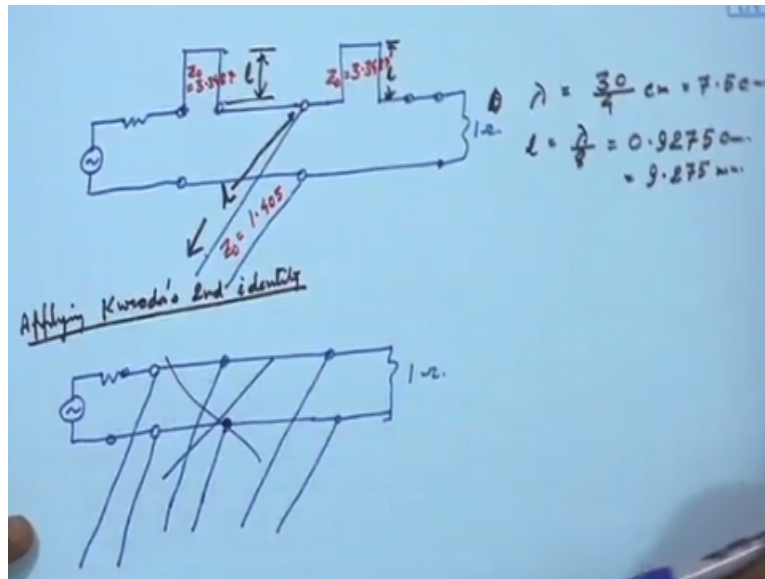 Z0 = 3.3487
l
Z0 = 3.3487
l
λ = 30/4 cm = 7.5 cm
l = λ/8 = 0.9275 cm.
= 9.275 mm.
1Ω.
l
Z0 = 1.405
Applying Kuroda's 2nd identity
1Ω.